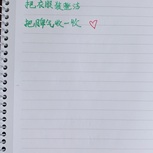 把衣服整整洁
把脾气收一收